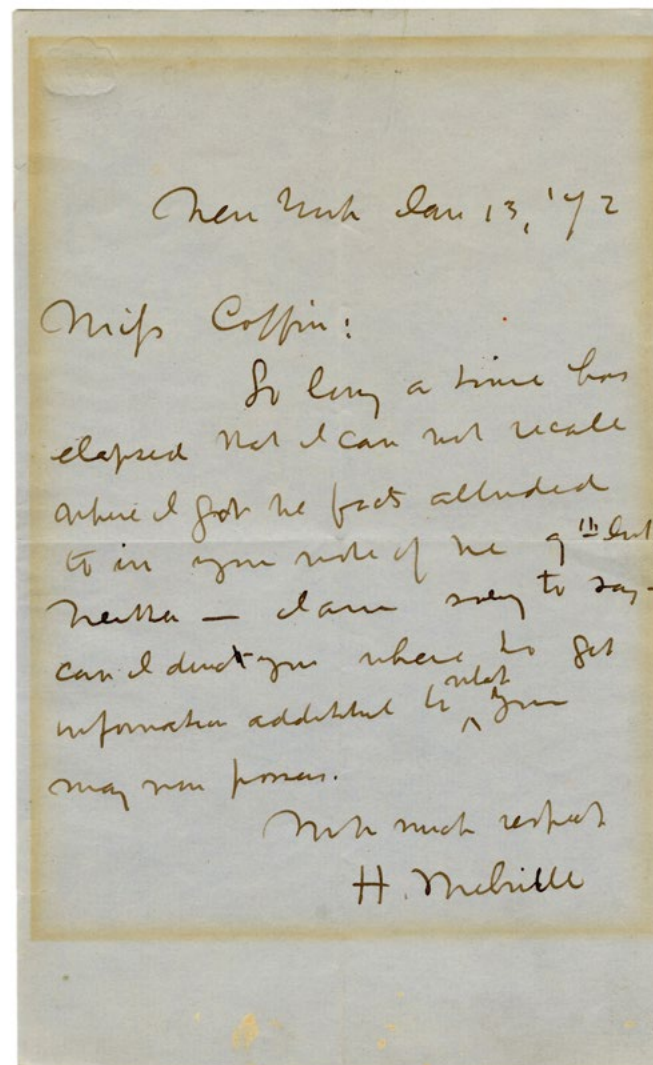 New York Jan 13, '72
Miss Coffin:
So long a time has
elapsed that I can not recall
where I got the facts alluded
to in your note of the 9th Inst
Neither — I am sorry to say —
can I direct you where to get
information additional to what you
may now possess.
With much respect
H. Melville